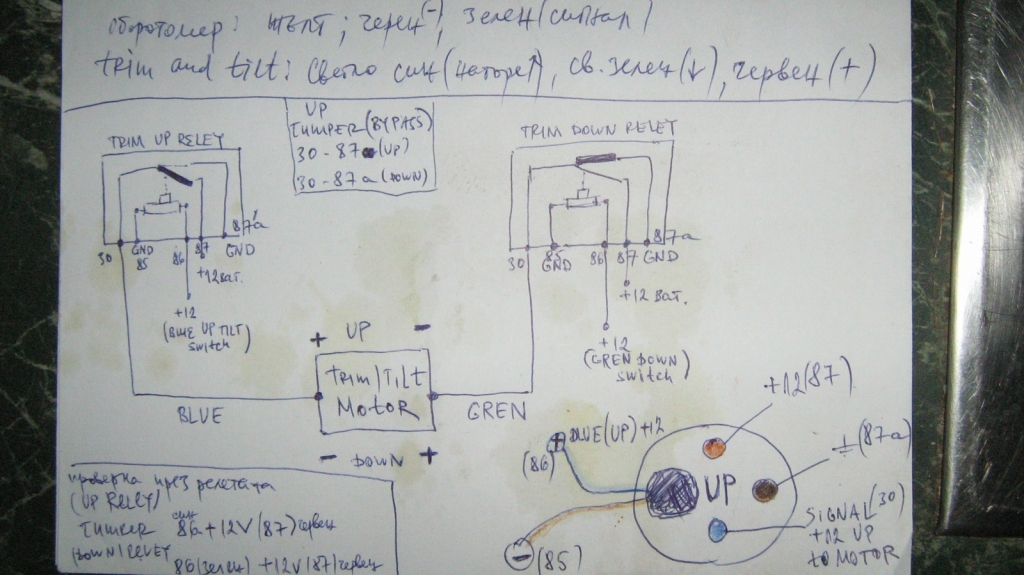 оборотомер: жълт; черен(-), зелен(сигнал)
trim and tilt: Светло син(нагоре↑), св. зелен(↓), червен(+)
UP
JUMPER(BYPASS)
30-87 (UP)
30-87a (DOWN)
TRIM UP RELEY
30
GND
85
86
87
87a
GND
+12 Bat.
+12
(BLUE UP TILT)
switch
TRIM DOWN RELEY
30
85
GND
86
87
87a
GND
+12 Bat.
+12
(GREN DOWN)
switch
+ UP -
TRIM/TILT
MOTOR
BLUE
GREN
- DOWN +
проверка чрез релетата
(UP RELEY)
JUMPER 86+12V(87)червен
син
DOWN RELEY
86(зелен) +12V(87)червен
+ BLUE(UP)+12
(86)
- (85)
UP
+12(87)
(87a)
SIGNAL(30)
+12 UP
to MOTOR